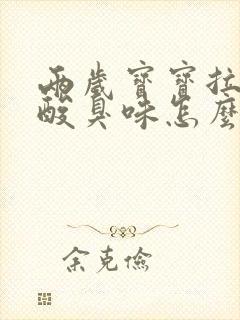 兩歲寶寶拉
酸臭味怎麼
余克儉